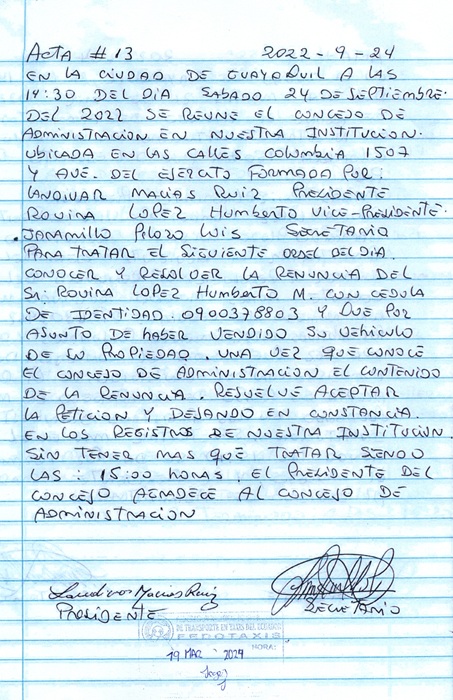 ACTA # 13 2022-9-24
EN LA CIUDAD DE GUAYAQUIL A LAS
14:30 DEL DIA SABADO 24 DE SEPTIEMBRE.
DEL 2022 SE REUNE EL CONCEJO DE
ADMINISTRACION EN NUESTRA INSTITUCION.
UBICADA EN LAS CALLES COLOMBIA 1507
Y AVE. DEL EJERCITO FORMADA POR:
LANDIVAR MACIAS RUIZ PRECIDENTE
ROVINA LOPEZ HUMBERTO VICE-PRESIDENTE.
JARAMILLO PILOZO LUIS SECRETARIO
PARA TRATAR EL SIGUIENTE ORDEL DEL DIA.
CONOCER Y RESOLVER LA RENUNCIA DEL
Sr: ROVINA LOPEZ HUMBERTO M. CON CEDULA
DE IDENTIDAD. 0900378803 Y QUE POR
ASUNTO DE HABER VENDIDO SU VEHICULO
DE SU PROPIEDAD. UNA VEZ QUE CONOCE
EL CONCEJO DE ADMINISTRACION EL CONTENIDO
DE LA RENUNCIA. RESUELVE ACEPTAR
LA PETICION Y DEJANDO EN CONSTANCIA.
EN LOS REGISTROS DE NUESTRA INSTITUCION.
SIN TENER MAS QUE TRATAR SIENDO
LAS: 15:00 HORAS. EL PRECIDENTE DEL
CONCEJO AGRADECE AL CONCEJO DE
ADMINISTRACION
Landivar Macias Ruiz
PRESIDENTE SECRETARIO
DE TRANSPORTE EN TAXIS DEL
FEDOTAXIS
HORA:
19 MAR 2024